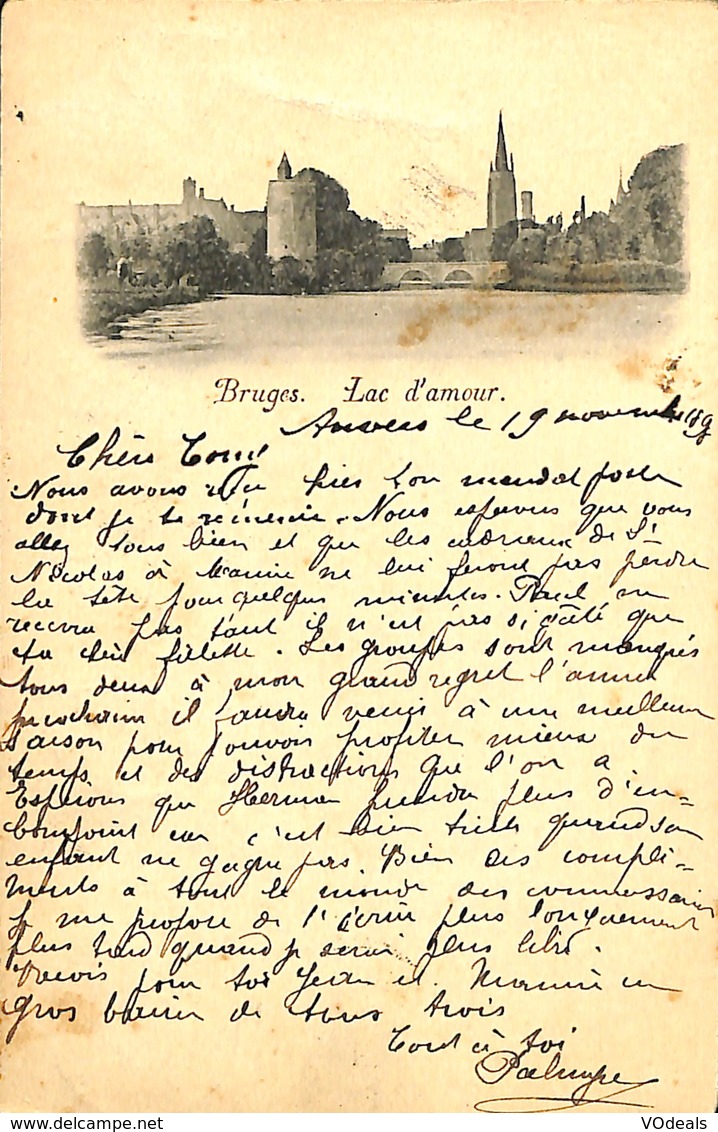 Bruges. Lac d'amour.
Anvers le 19 novembre 189
Chère
Nous avons reçu hier ton mandat poste
dont je te remercie. Nous espérons que vous
allez tous bien et que les cadeaux de St
Nicolas à ne lui feront pas perdre
la tête pour quelques minutes. Paul ne
recevra pas tant il n'est pas si gâté que
ta chère fillette. Les groupes sont manqués
tous deux à mon grand regret l'année
prochaine il faudra venir à une meilleure
saison pour pouvoir profiter mieux du
temps et des distractions que l'on a
Espérons que Herman prendra plus d'em-
bonpoint car c'est bien triste quand son
enfant ne gagne pas. Bien des compli-
ments à tout le monde des connaissances
je me propose de t'écrire plus longuement
plus tard quand je serai plus libre.
Reçois pour toi Jean et en
gros baiser de tous trois
Tout à toi
Palmyre
VOdeals